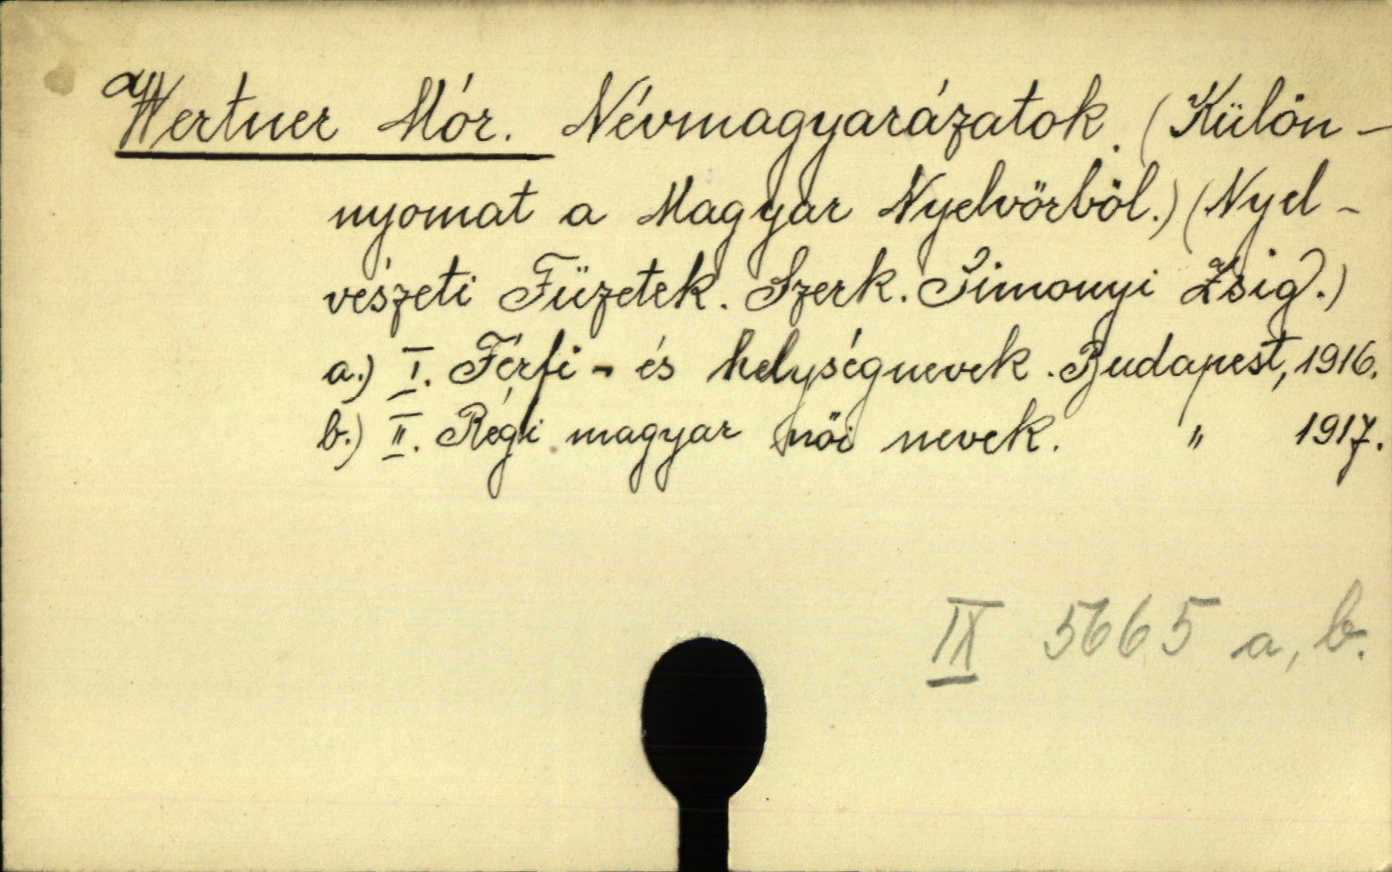 Wertner Mór. Névmagyarázatok. (Külön-
nyomat a Magyar Nyelvörböl.) (Nyel-
vészeti Füzetek. Szerk. Simonyi Zsig.)
a.) I. Férfi- és helységnevek. Budapest, 1916.
b.) II. Régi magyar női nevek. " 1917.
IX 5665 a, b.